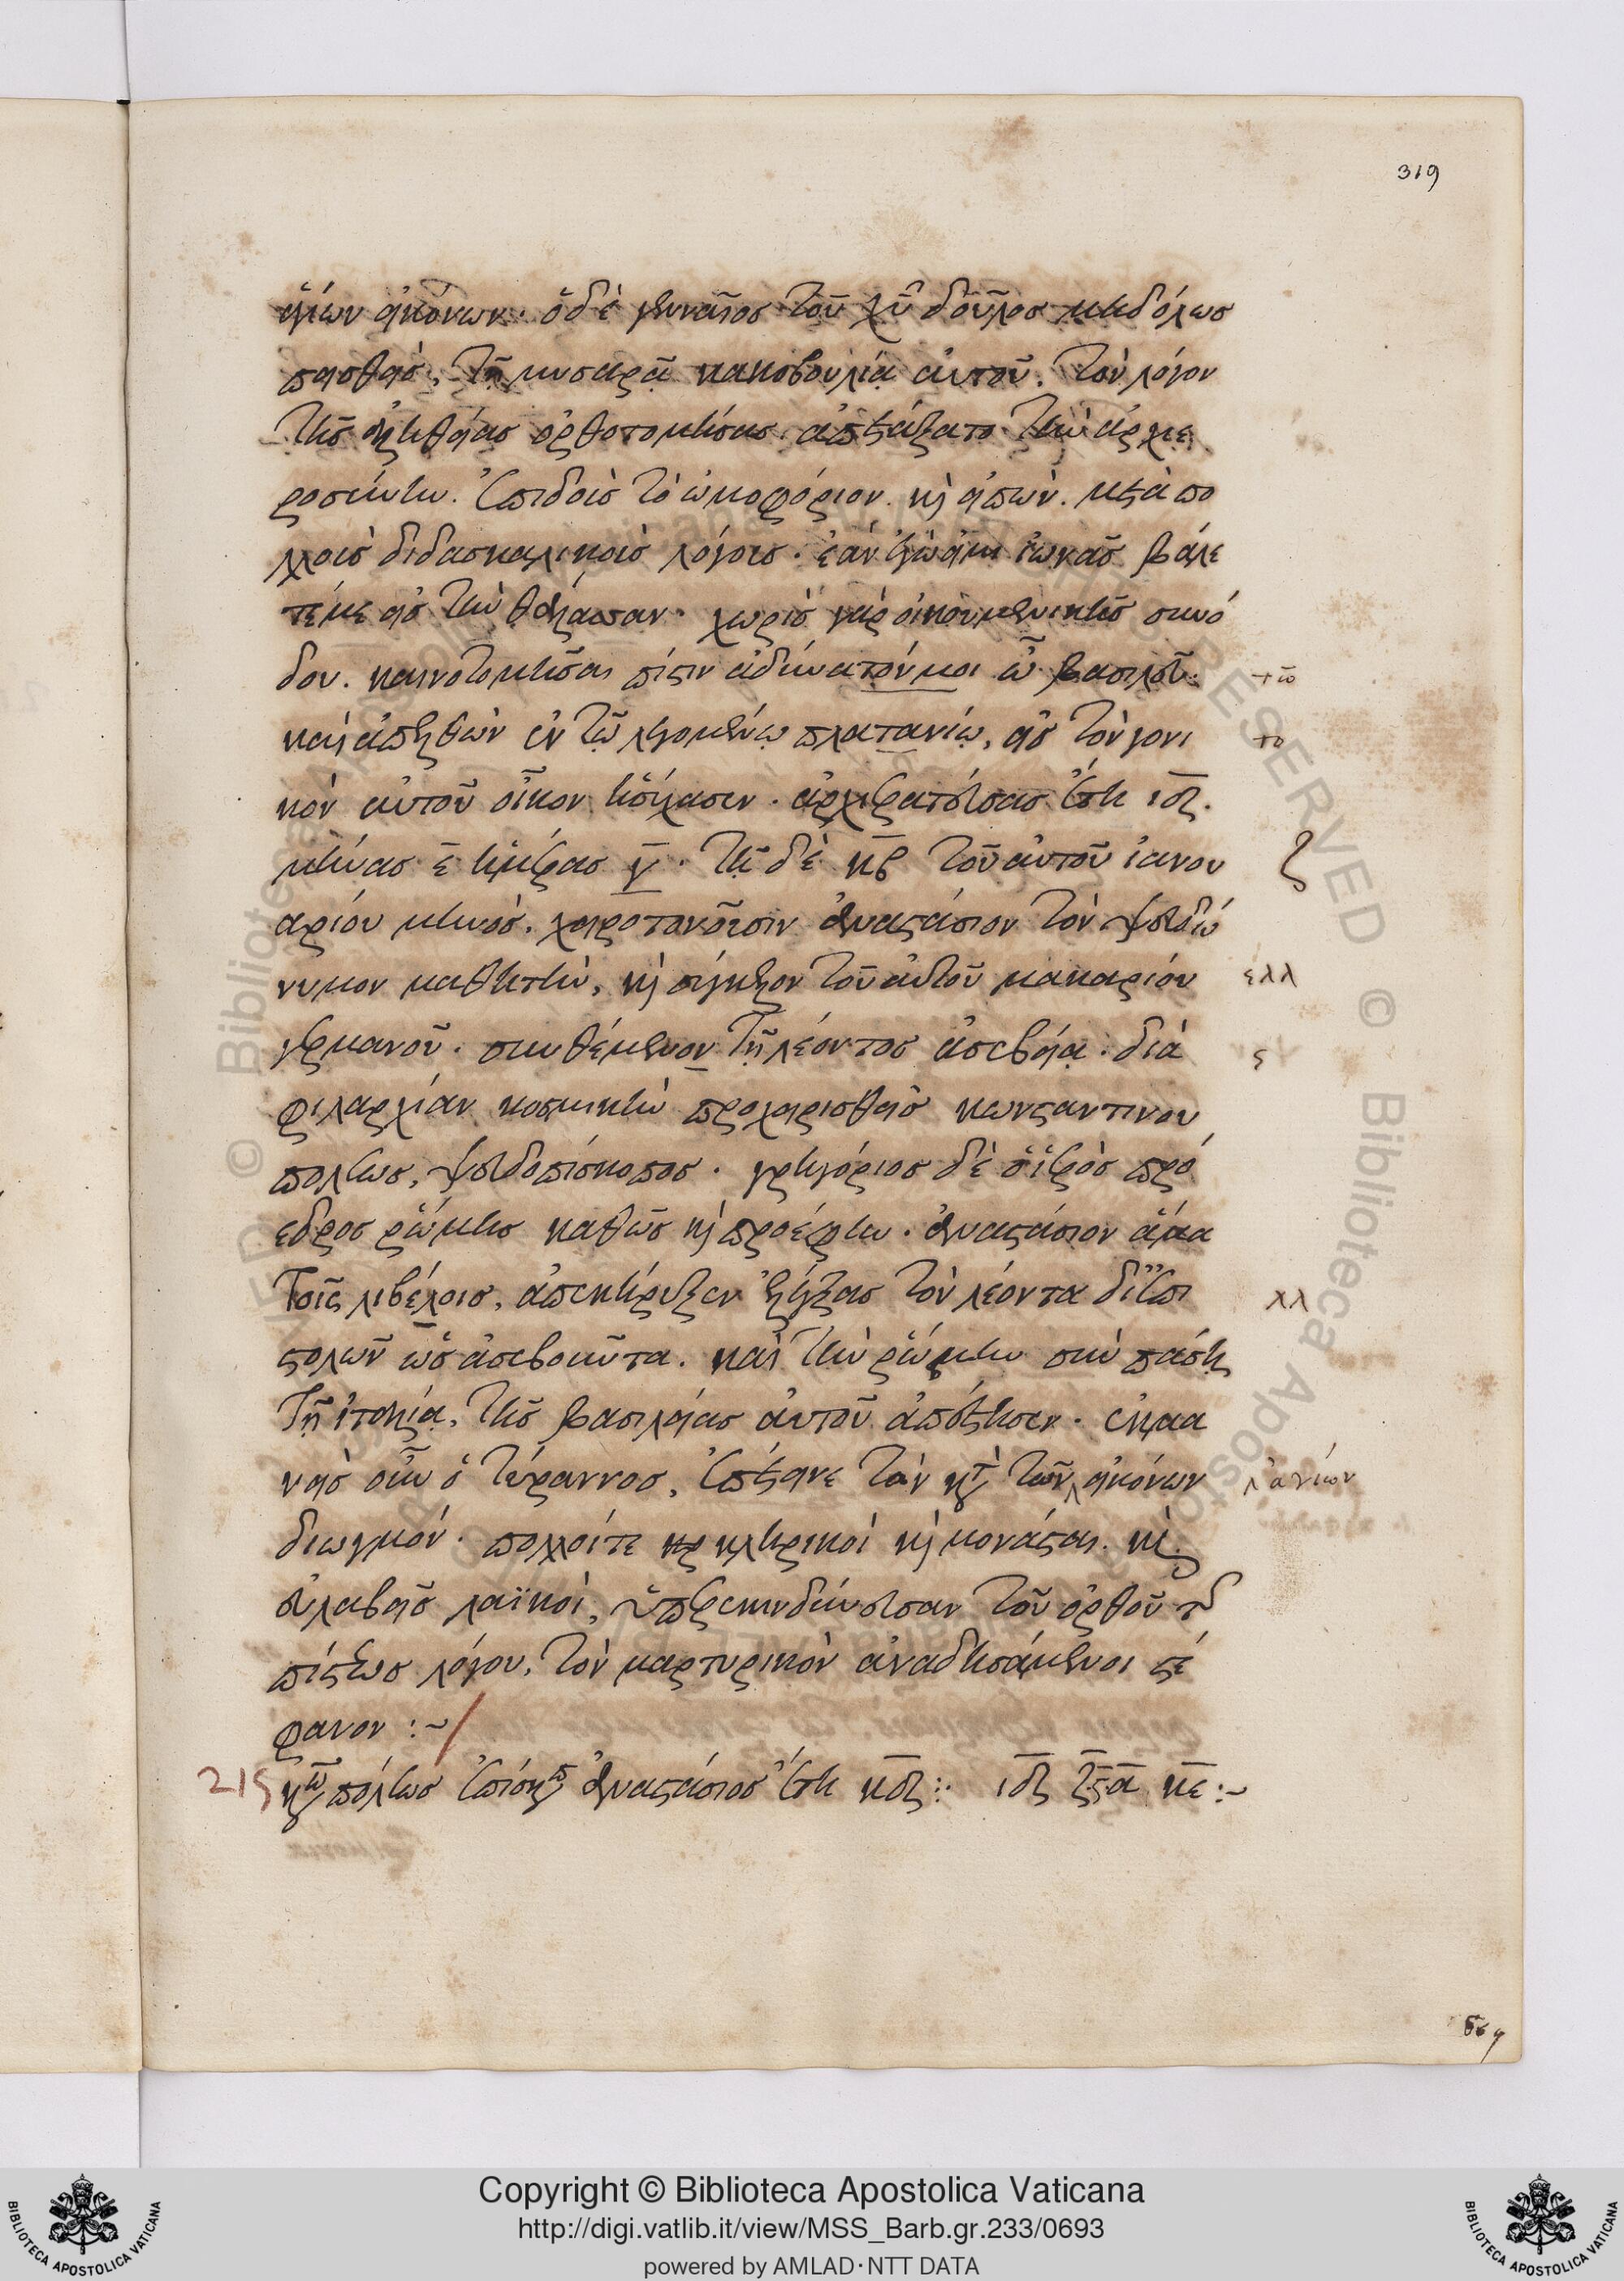 319
ἁγίων εἰκόνων. ὁ δὲ γενναῖος τοῦ χυ δοῦλος μηδόλως
πεισθεὶς, τῇ μυσαρᾷ κακοβουλίᾳ αὐτοῦ, τὸν λόγον
τῆς ἀληθείας ὀρθοτομήσας, ἀπετάξατο τὴν ἀρχιε
ροσύνην. ἐπιδοὺς τὸ ὠμοφόριον. καὶ εἰπὼν. μετὰ πο
λλοὺς διδασκαλικοὺς λόγους. ἐὰν ἐγὼ εἰμι ἰωνᾶς βάλε
τέ με εἰς τὴν θάλασσαν. χωρὶς γὰρ οἰκουμενικῆς συνό
δου. καινοτομῆσαι πίστιν ἀδύνατόν μοι ὦ βασιλεῦ.
τω
καὶ ἀπελθὼν ἐν τῷ λεγομένῳ πλατανίῳ, εἰς τὸν γονι
το
κὸν αὐτοῦ οἶκον ἡσύχασεν. ἀρχιερατεύσας ἔτη ιδ.
μῆνας ε ἡμέρας γ. τῇ δὲ κβ τοῦ αὐτοῦ ἰανου
ζ
αρίου μηνὸς, χειροτονοῦσιν ἀναστάσιον τὸν ψευδώ
νυμον μαθητὴν, καὶ σύγκελον τοῦ αὐτοῦ μακαρίου
ελλ
γερμανοῦ. συνθέμενον τῇ λέοντος ἀσεβείᾳ. διὰ
ς
φιλαρχίαν κοσμικὴν προχειρισθεὶς κωνσταντινου
πόλεως, ψευδοπίσκοπος. γρηγόριος δὲ ὁ ἱερὸς πρό
εδρος ῥώμης καθὼς καὶ προέφην. ἀναστάσιον ἅμα
τοῖς λιβέλοις, ἀπεκήρυξεν ἐλέγξας τὸν λέοντα δι' ἐπι
λλ
στολῶν ὡς ἀσεβοῦντα. καὶ τὴν ῥώμην σὺν πάσῃ
τῇ ἰταλίᾳ, τῆς βασιλείας αὐτοῦ ἀπέστησεν. ἐκμα
νεὶς οὖν ὁ τύραννος, ἐπέτεινε τὸν κατὰ τῶν εἰκόνων
ἁγίων
διωγμόν. πολλοί τε κληρικοὶ καὶ μονάσται. καὶ
εὐλαβεῖς λαϊκοὶ, ὑπερεκινδύνευσαν τοῦ ὀρθοῦ τῆς
πίστεως λόγου, τὸν μαρτυρικὸν ἀναδησάμενοι στέ
φανον :~
κων πόλεως ἐπίσκοπος ἀναστάσιος ἔτη κδ :
Copyright © Biblioteca Apostolica Vaticana
http://digi.vatlib.it/view/MSS_Barb.gr.233/0693
powered by AMLAD·NTT DATA